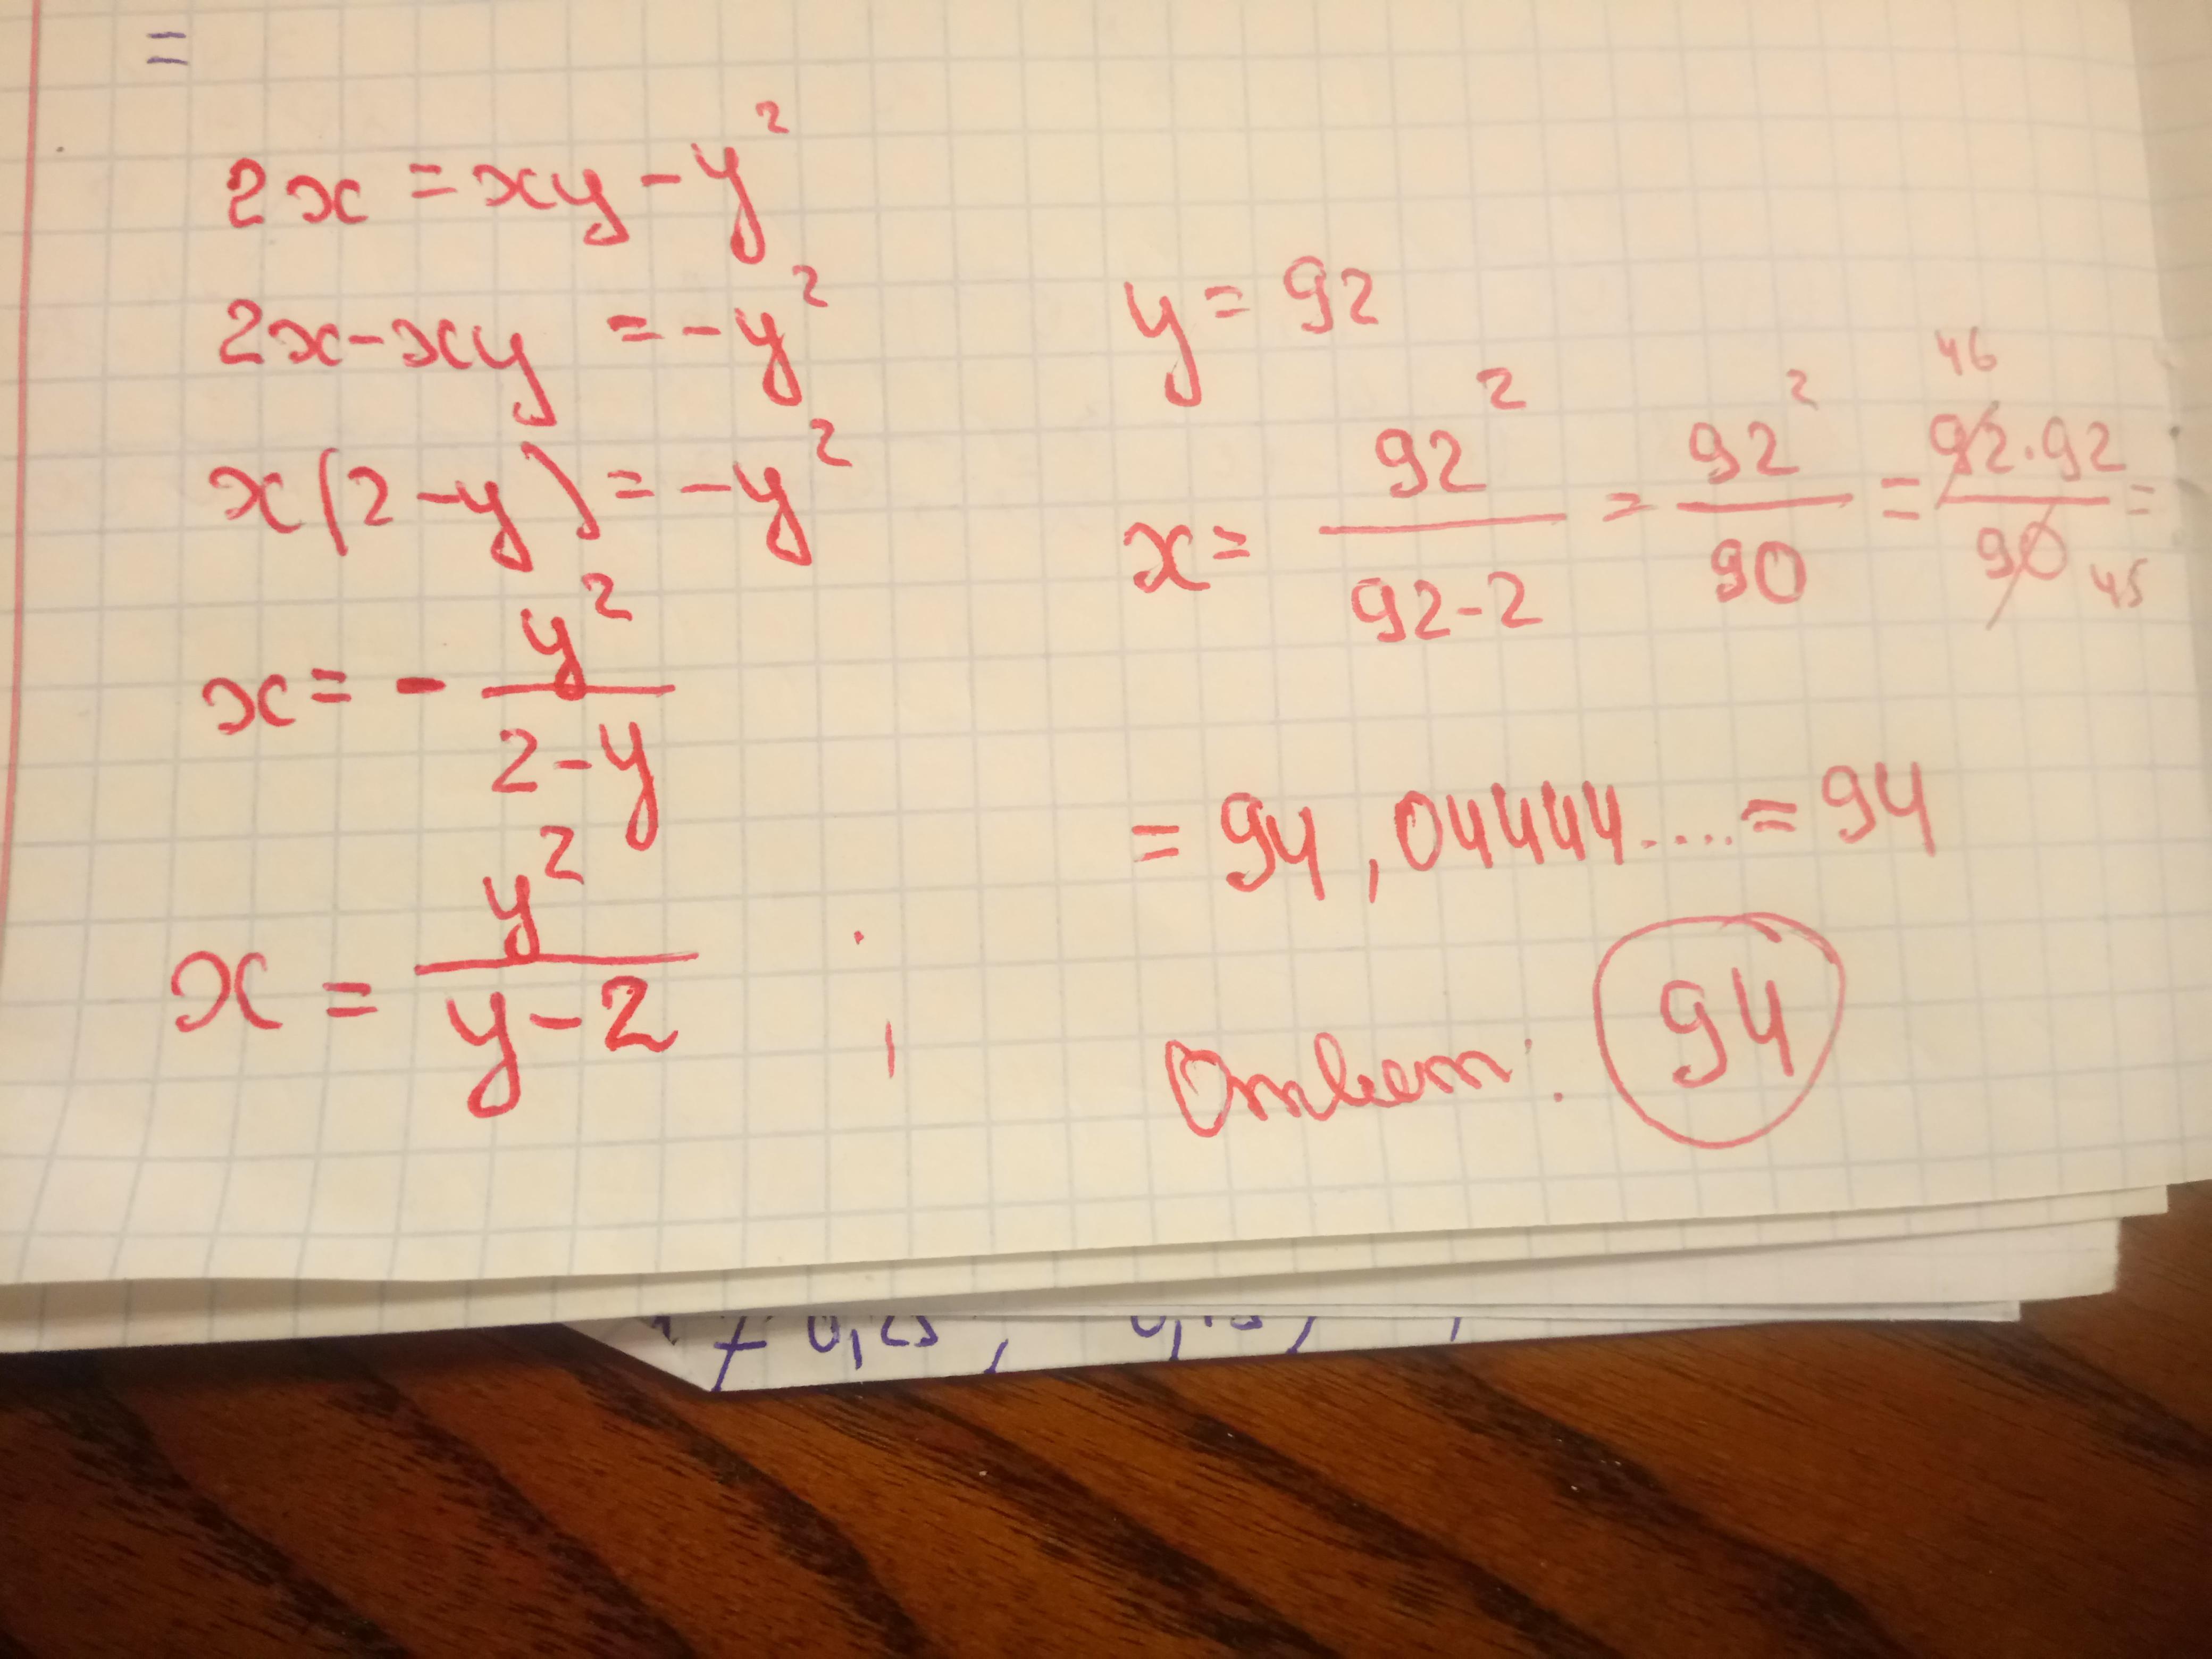 =
2x = xy - y²
2x - xy = -y²
x(2 - y) = -y²
x = - y²
2 - y
x = y²
y - 2
;
y = 92
46
x = 92² = 92² = 92·92 =
92-2 90 90 45
= 94,04444.... = 94
Ответ: 94